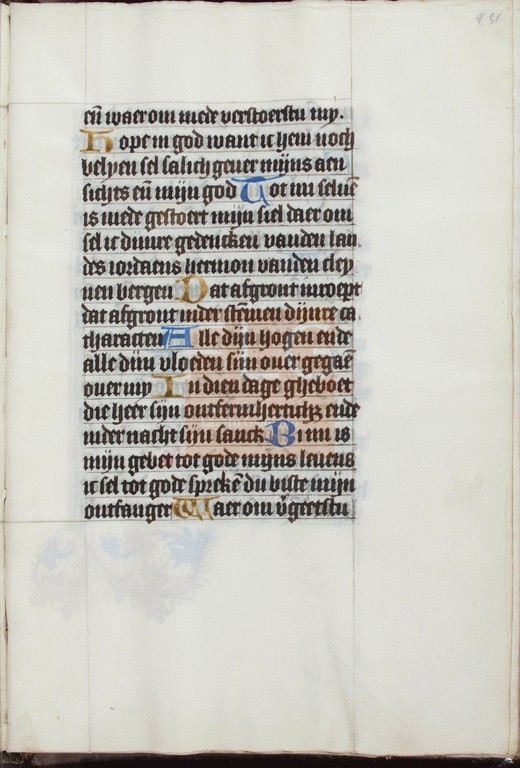 231
eñ waer om mede verstoerstu my.
Hope in god want ic hem noch
belyen sel salich gever mijns aen
sichts eñ mijn god Tot mi selvē
is mede gestoert mijn siel daer om
sel ic dijnre gedencken vanden lan
des iordaens hermon vanden cley
nen bergen Dat afgront inroept
dat afgront inder stēmen dijnre ca
tharacten Alle dijn hogen ende
alle dijn vloeden sijn over gegaē
over my In dien dage gheboet
die heer sijn ontfermherticheit ende
inder nacht sijn sanck Bi mi is
mijn gebet tot gode mijns levens
ic sel tot gode sprekē du biste mijn
ontfanger Waer om v̄geetstu